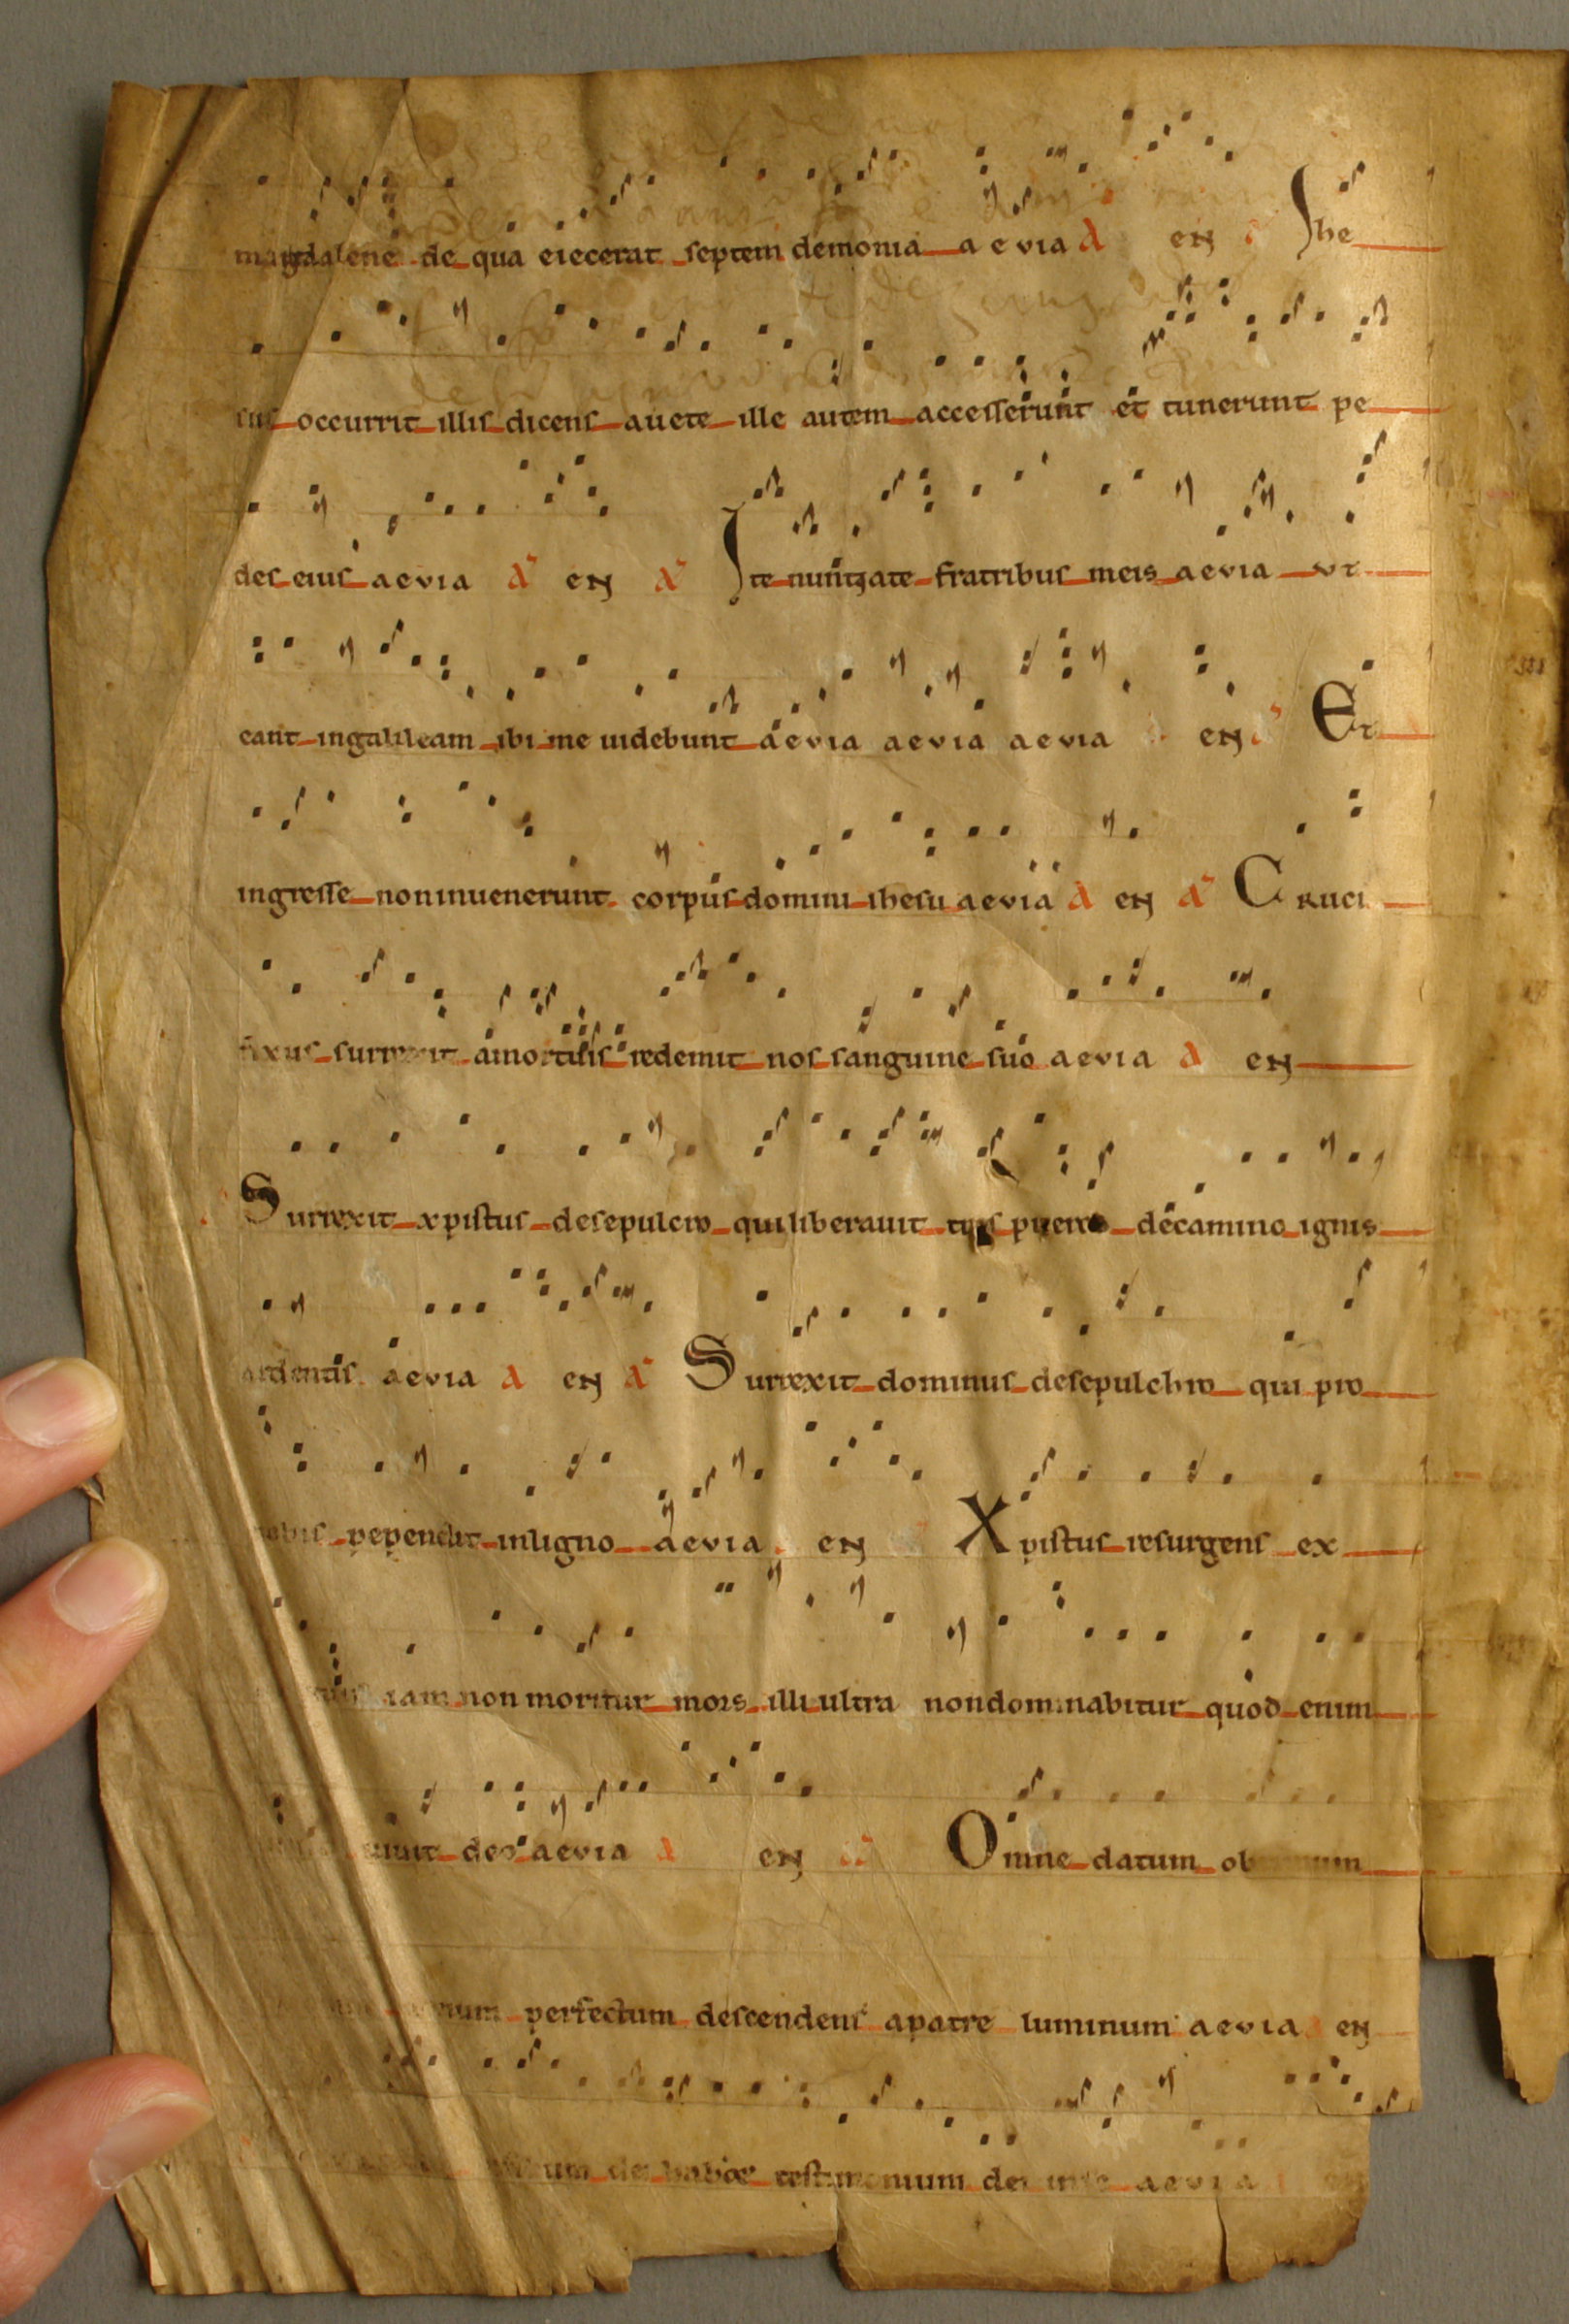 magdalene de qua eiecerat septem demonia a e via A en Ihe
sus occurrit illis dicens auete ille autem accesserunt et tenuerunt pe
des eius aevia A en A Ite nuntiate fratribus meis aevia vt
eant in galileam ibi me uidebunt aevia aevia aevia en Et
ingresse non inuenerunt corpus domini ihesu aevia A en A Cruci
fixus surrexit a mortuis redemit nos sanguine suo aevia A en
Surrexit xpistus de sepulcro qui liberauit tres pueros de camino ignis
ardentis aevia A en A Surrexit dominus de sepulchro qui pro
nobis pependit in ligno aevia en Xpistus resurgens ex
iam non moritur mors illi ultra non dominabitur quod enim
uiuit deo aevia A en Omne datum
perfectum descendens a patre luminum aevia en
testimonium dei aevia